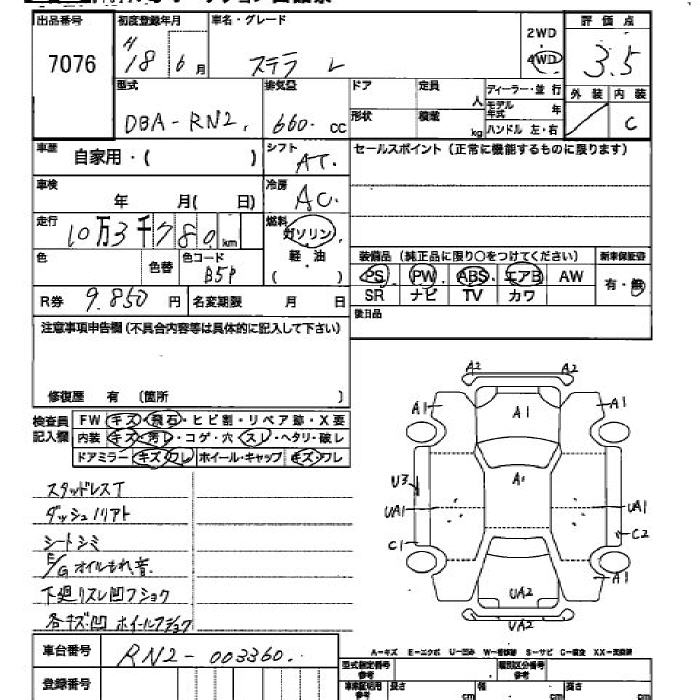 出品番号
7076
初度登録年月
H
18 6月
車名・グレード
ステラ L
2WD
4WD
評価点
3.5
外装 内装
C
型式
DBA-RN2
排気量
660 CC
ドア 定員 人
形状 積載 kg
ディーラー・並行
モデル年式 年
ハンドル 左・右
車歴
自家用・( )
シフト
AT
セールスポイント(正常に機能するものに限ります)
車検
年 月( 日)
冷房
AC
走行
10万3千780km
燃料
ガソリン
軽・油
( )
色
色替
色コード
B5P
装備品(純正品に限り○をつけてください)
新車保証書
PS PW ABS エアB AW
SR ナビ TV カワ
有・無
R券 9.850円
名変期限 月 日
後日品
注意事項申告欄(不具合内容等は具体的に記入して下さい)
修復歴 有 〔箇所 〕
検査員記入欄
FW キズ・飛石・ヒビ割・リペア跡・X要
内装 キズ・汚レ・コゲ・穴・スレ・ヘタリ・破レ
ドアミラー キズ・ワレ ホイール・キャップ キズ・ワレ
スタッドレスT
ダッシュノリアト
シートシミ
E/Gオイルもれ、音
下廻リスレ凹フショク
各キズ凹 ホイールフショク
A2 A2
A1 A1 A1
A1
U3
UA1 UA1
C1 C2
A1
UA2
UA2
車台番号
RN2-003360
登録番号
A-キズ E-エクボ U-凹み W-補修跡 S-サビ C-腐食 XX-交換済
型式指定番号 参考
類別区分番号 参考
長さ cm 幅 cm 高さ cm